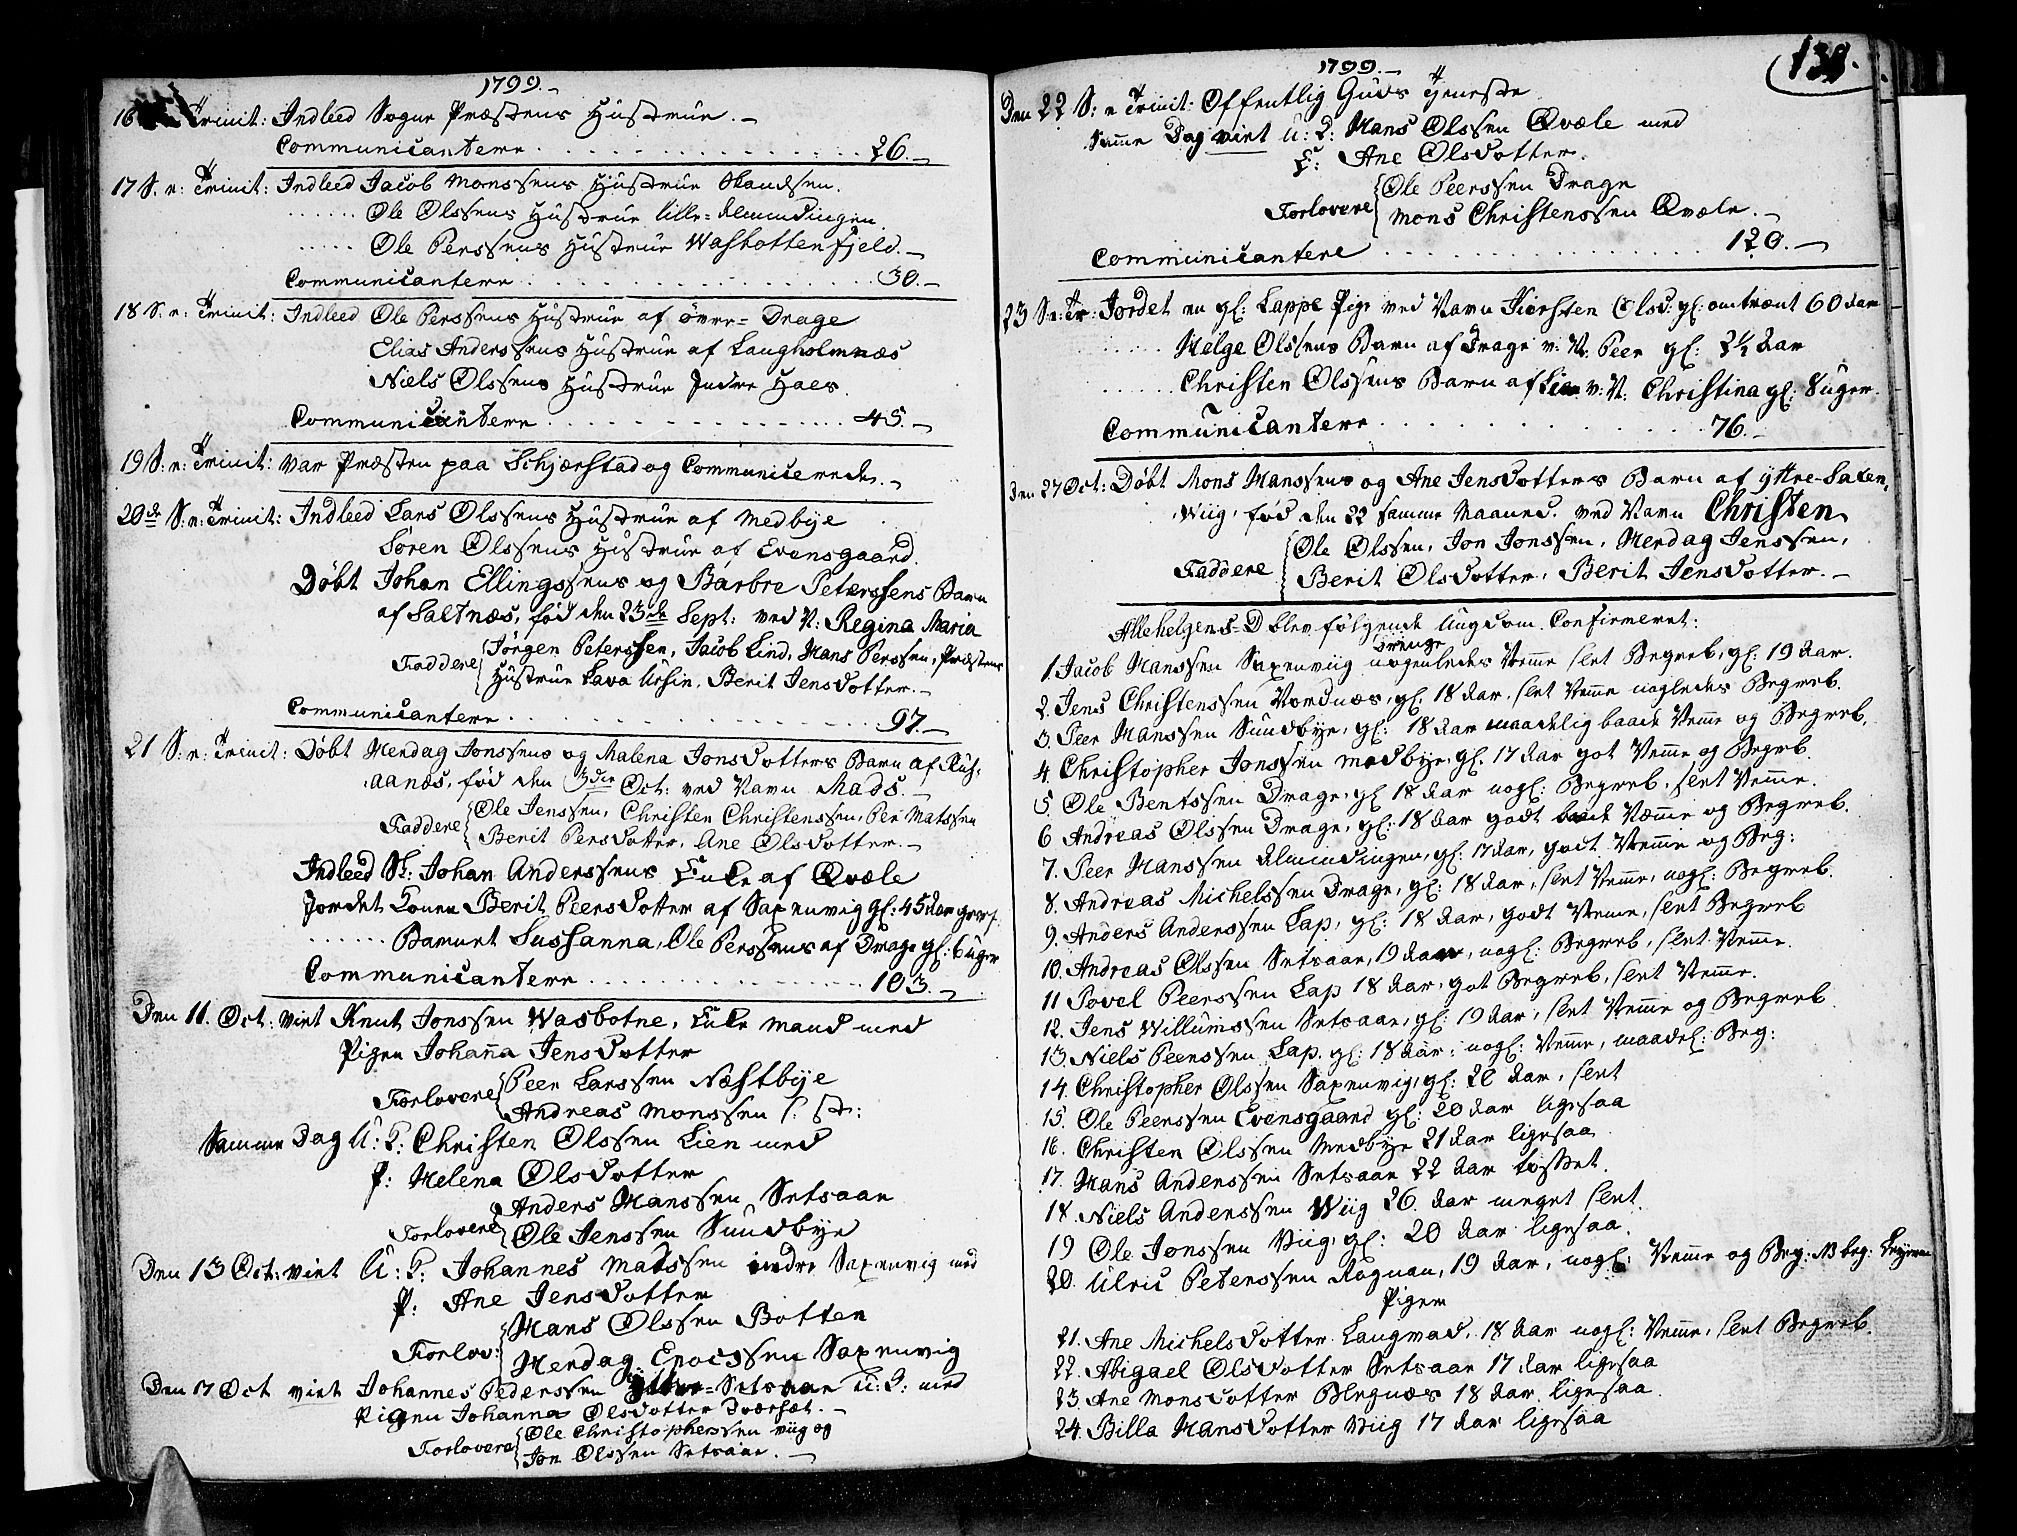 1799.
16 Trinit: Indleed Sogne Præstens Hustrue.
Communicantere . . . 26.
17 S. e: Trinit: Indleed Jacob Monssens Hustrue Skandsen.
Ole Olssens Hustrue Lille-Almindingen.
Ole Perssens Hustrue Wasbottenfjeld.
Communicantere . . . 30.
18 S. e: Trinit: Indleed Ole Perssens Hustrue af øvre-Drage
Elias Anderssens Hustrue af Langholmnæs
Niels Olssens Hustrue Indre Haes.
Communicantere . . . 45.
19 S: e: Trinit: var Præsten paa Schjærstad og Communicerede.
20de S: e: Trinit: Indleed Lars Olssens Hustrue af Medbye
Søren Olssens Hustrue af Evensgaard.
Døbt Johan Ellingssens og Barbre Peterssens Barn
af Saltnæs, fød den 23de Sept: ved N: Regina Maria
Faddere Jørgen Peterssen, Jacob Lind, Hans Perssen, Præstens
Hustrue Lava Ursin, Berit Jensdotter.
Communicantere . . . 97.
21 S: e: Trinit: Døbt Herdag Jonssens og Malena Jonsdotters Barn af Rus-
aanæs, fød den 3die Oct: ved Navn Mads.
Faddere Ole Jenssen, Christen Christenssen, Per Matssen
Berit Persdotter, Ane Olsdotter.
Indleed Sl: Johan Anderssens Enke af Qvæle
Jordet Konen Berit Peersdotter af Saxenvig gl: 45 Aar
Barnet Sussanna, Ole Perssens af Drage gl: 6 Uger
Communicantere . . . 103.
Den 11. Oct: viet Knut Jonssen Wasbotne, Enke Mand med
Pigen Johanna Jensdotter
Forlovere Peer Larssen Næstbye
Andreas Monssen
Samme Dag U: K: Christen Olssen Lien med
P: Helena Olsdotter
Forlovere Anders Hanssen Setsaae
Ole Jenssen Sundbye
Den 13 Oct: viet U: K: Johannes Matssen indre Saxenvig med
P: Ane Jensdotter
Forlov: Hans Olssen Botten
Herdag Enocssen Saxenvig
Den 17 Oct viet Johannes Pederssen Setsaae U: K: med
Pigen Johanna Olsdotter Tverset.
Forlovere Ole Christopherssen viig og
Jon Olssen Setsaae.
1799.
Den 22 S: e Trinit: Offentlig Guds Tjeneste
Samme Dag viet U: K: Hans Olssen Qvæle med
E: Ane Olsdotter.
Forlovere Ole Peerssen Drage
Mons Christenssen Qvæle.
Communicantere . . . 120.
23 S: e: Tr: Jordet en gl: Lappe Pige ved Navn Kiersten Olsd: gl: omtrent 60 Aar
Helge Olssens Barn af Drage v: N: Peer gl: 2½ Aar
Christen Olssens Barn af Lien v: N: Christina gl: 8 uger.
Communicantere . . . 76.
Den 27 Oct: Døbt Mons Hanssens og Ane Jensdotters Barn af ytre-Saxen-
wiig, fød den 22 samme Maaned. ved Navn Christen.
Faddere Ole Olssen, Jon Jonssen, Herdag Jenssen,
Berit Olsdotter, Berit Jensdotter.
Allehelgens-D blev følgende Ungdom Confirmeret:
Drenge
1. Jacob Hanssen Saxenviig nogenledes Nemme slet Begreb, gl: 19 Aar.
2. Jens Christenssen Nordnæs, gl: 18 Aar, slet Nemme nogledes Begreb.
3. Peer Hanssen Sundbye, gl: 18 Aar maadelig baade Nemme og Begreb.
4. Christopher Jonssen Medbye, gl. 17 Aar got Nemme og Begreb.
5. Ole Bentssen Drage, gl 18 Aar nogl: Begreb, slet Nemme.
6 Andreas Olssen Drage, gl: 18 Aar godt baade Nemme og Begreb.
7. Peer Hanssen Almindingen, gl: 17 Aar, godt Nemme og Beg:
8. Andreas Michelssen Drage, gl: 18 Aar, slet Nemme, nogl: Begreb.
9. Anders Anderssen Lap, gl: 18 Aar, godt Nemme, slet Begreb
10. Andreas Olssen Setsaae, 19 Aar, nogl: Begreb, slet Nemme.
11 Povel Peerssen Lap 18 Aar, got Begreb, slet Nemme.
12. Jens Willumssen Setsaae, gl: 19 Aar, slet Nemme og Begreb
13. Niels Peerssen Lap. gl: 18 Aar, nogl: Nemme, maadel: Beg:
14. Christopher Olssen Saxenvig, gl: 20 Aar, slet
15. Ole Peerssen Evensgaard gl: 20 Aar ligesaa
16. Christen Olssen Medbye 21 Aar ligesaa
17. Hans Anderssen Setsaae 22 Aar tosset.
18. Niels Anderssen Wiig 26. Aar meget slet.
19 Ole Jonssen Viig, gl: 20 Aar ligesaa.
20. Ulric Peterssen Rognan, 19 Aar, nogl: Nemme og Beg:
Piger
21. Ane Michelsdotter Langvad, 18 Aar nogl: Nemme, slet Begreb.
22. Abigael Olsdotter Setsaae 17 Aar ligesaa
23. Ane Monsdotter Blegnæs 18 Aar, ligesaa.
24. Billa Hansdotter Viig 17 Aar ligesaa